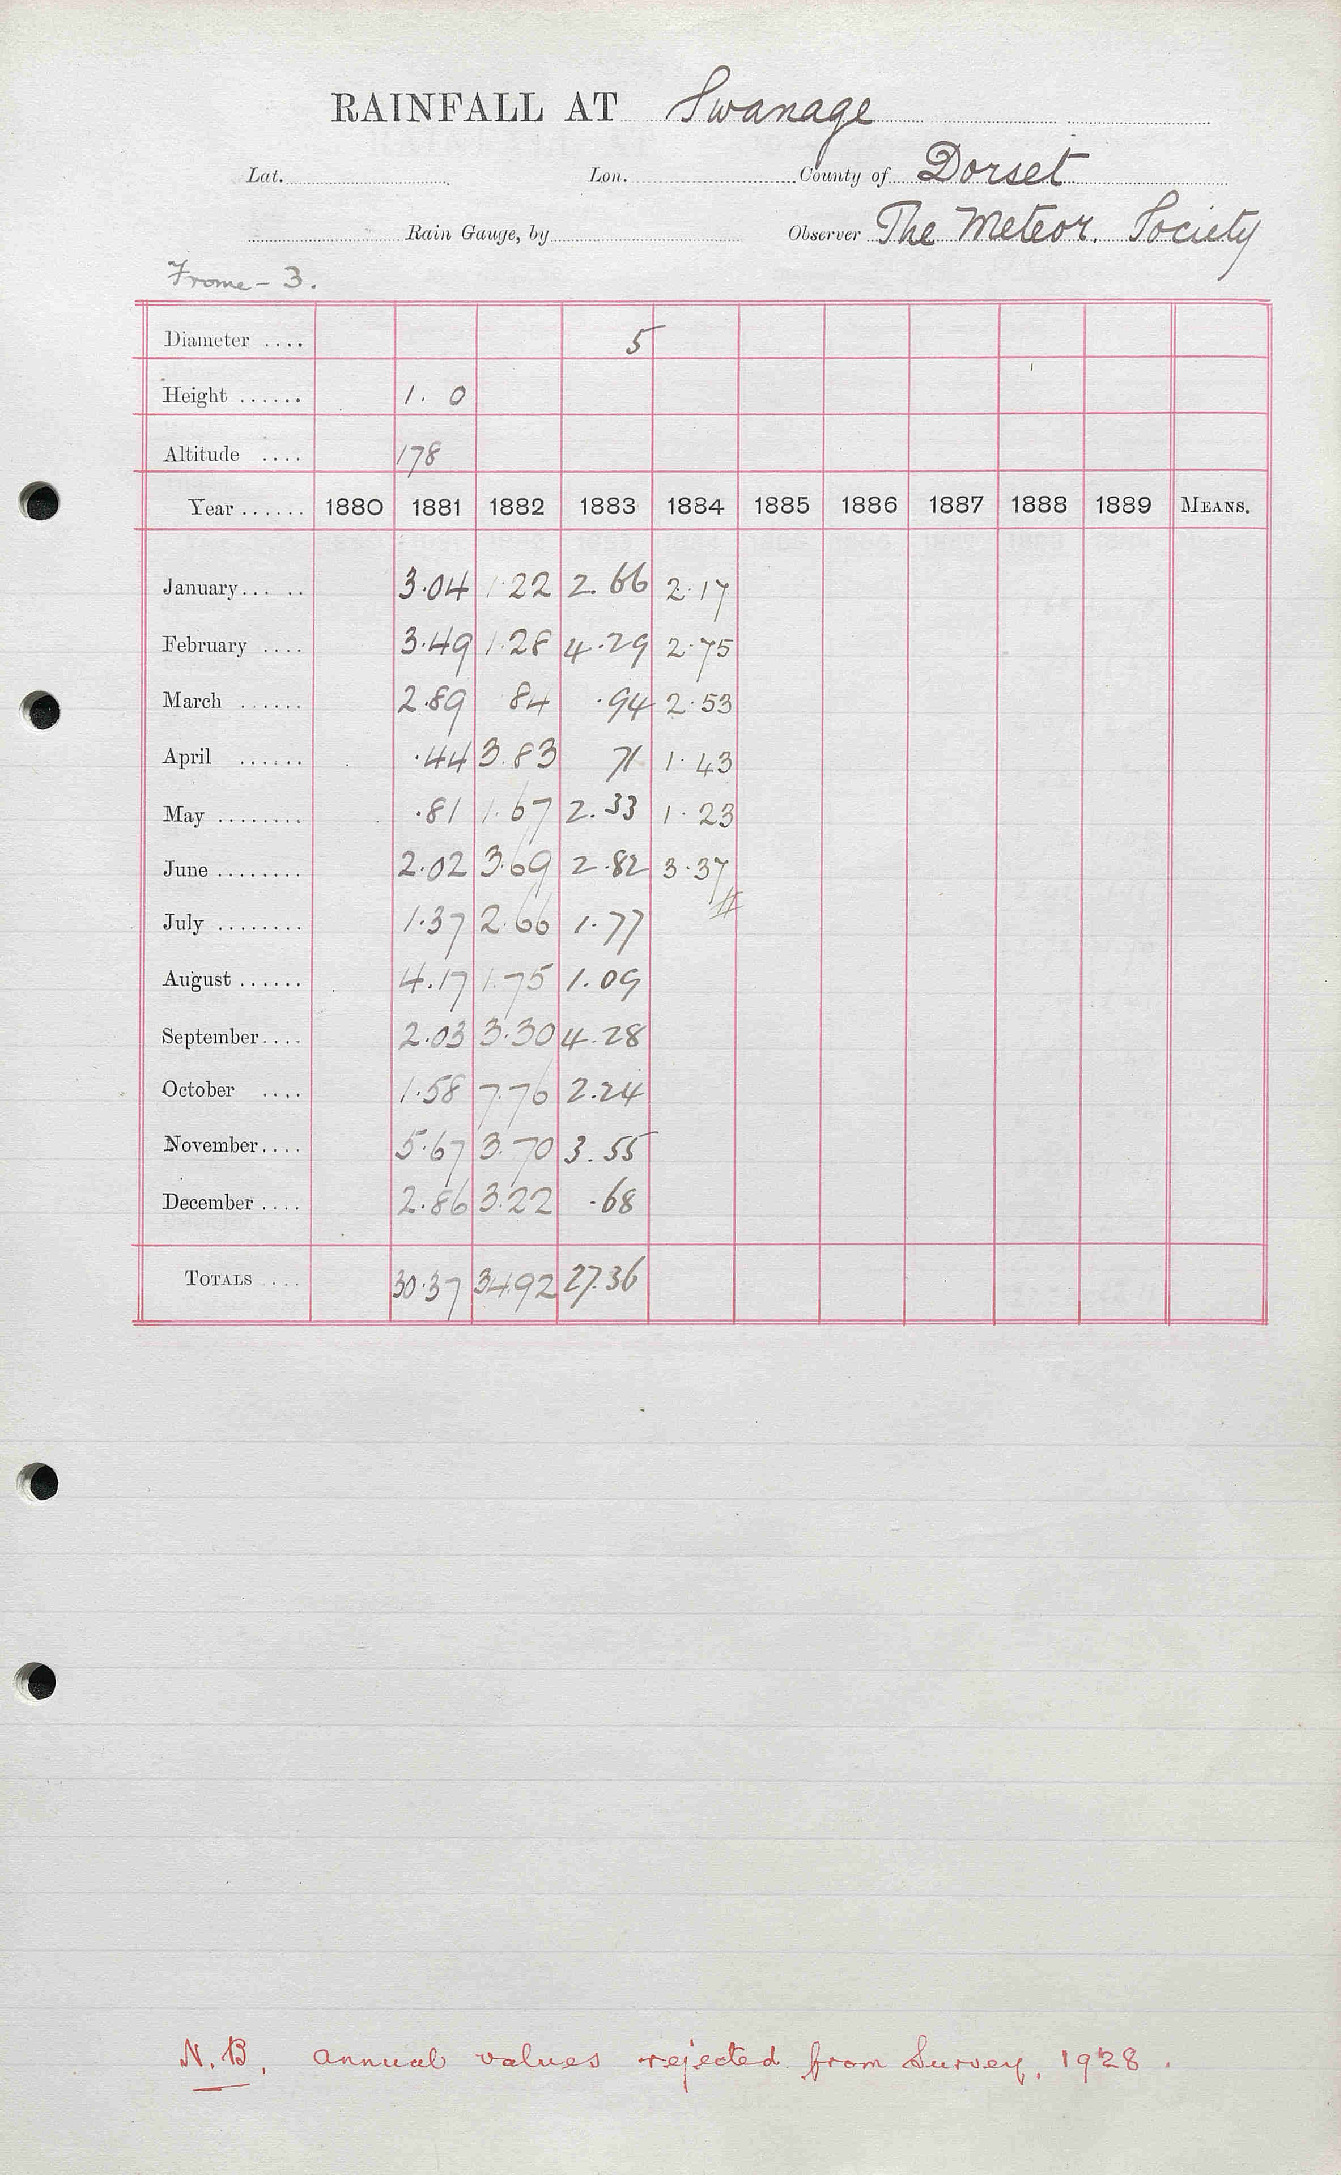 RAINFALL AT Swanage
Lat. Lon. County of Dorset
Rain Gauge, by Observer The Meteor. Society
Frome - 3.
Diameter .... 5
Height ...... 1. 0
Altitude .... 178
Year ...... 1880 1881 1882 1883 1884 1885 1886 1887 1888 1889 MEANS.
January... .. 3.04 1.22 2.66 2.17
February .... 3.49 1.28 4.29 2.75
March ...... 2.89 84 .94 2.53
April ...... .44 3.83 71 1.43
May ........ .81 1.67 2.33 1.23
June ........ 2.02 3.69 2.82 3.37
July ........ 1.37 2.66 1.77 #
August ...... 4.17 1.75 1.09
September.... 2.03 3.30 4.28
October .... 1.58 7.76 2.24
November.... 5.67 3.70 3.55
December .... 2.86 3.22 .68
TOTALS .... 30.37 34.92 27.36
N.B. annual values rejected from Survey, 1928.